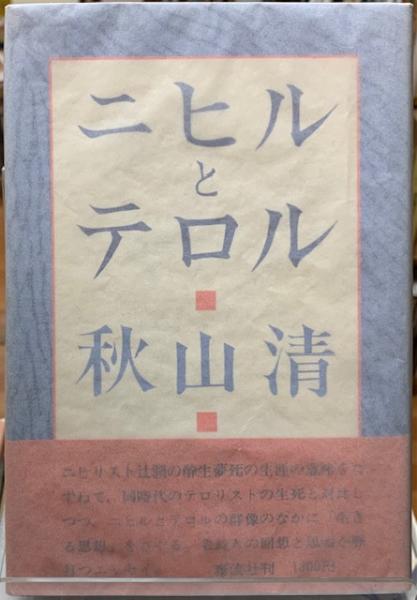 ニヒル
と
テロル
秋山清
ニヒリスト辻潤の酔生夢死の生涯の意味をた
ずねて、同時代のテロリストの生死と対比し
つつ、ニヒルとテロルの群像のなかに「生き
る思想」をさぐる。老詩人の回想と思念が脈
打つエッセイ。 川流社刊 1300円